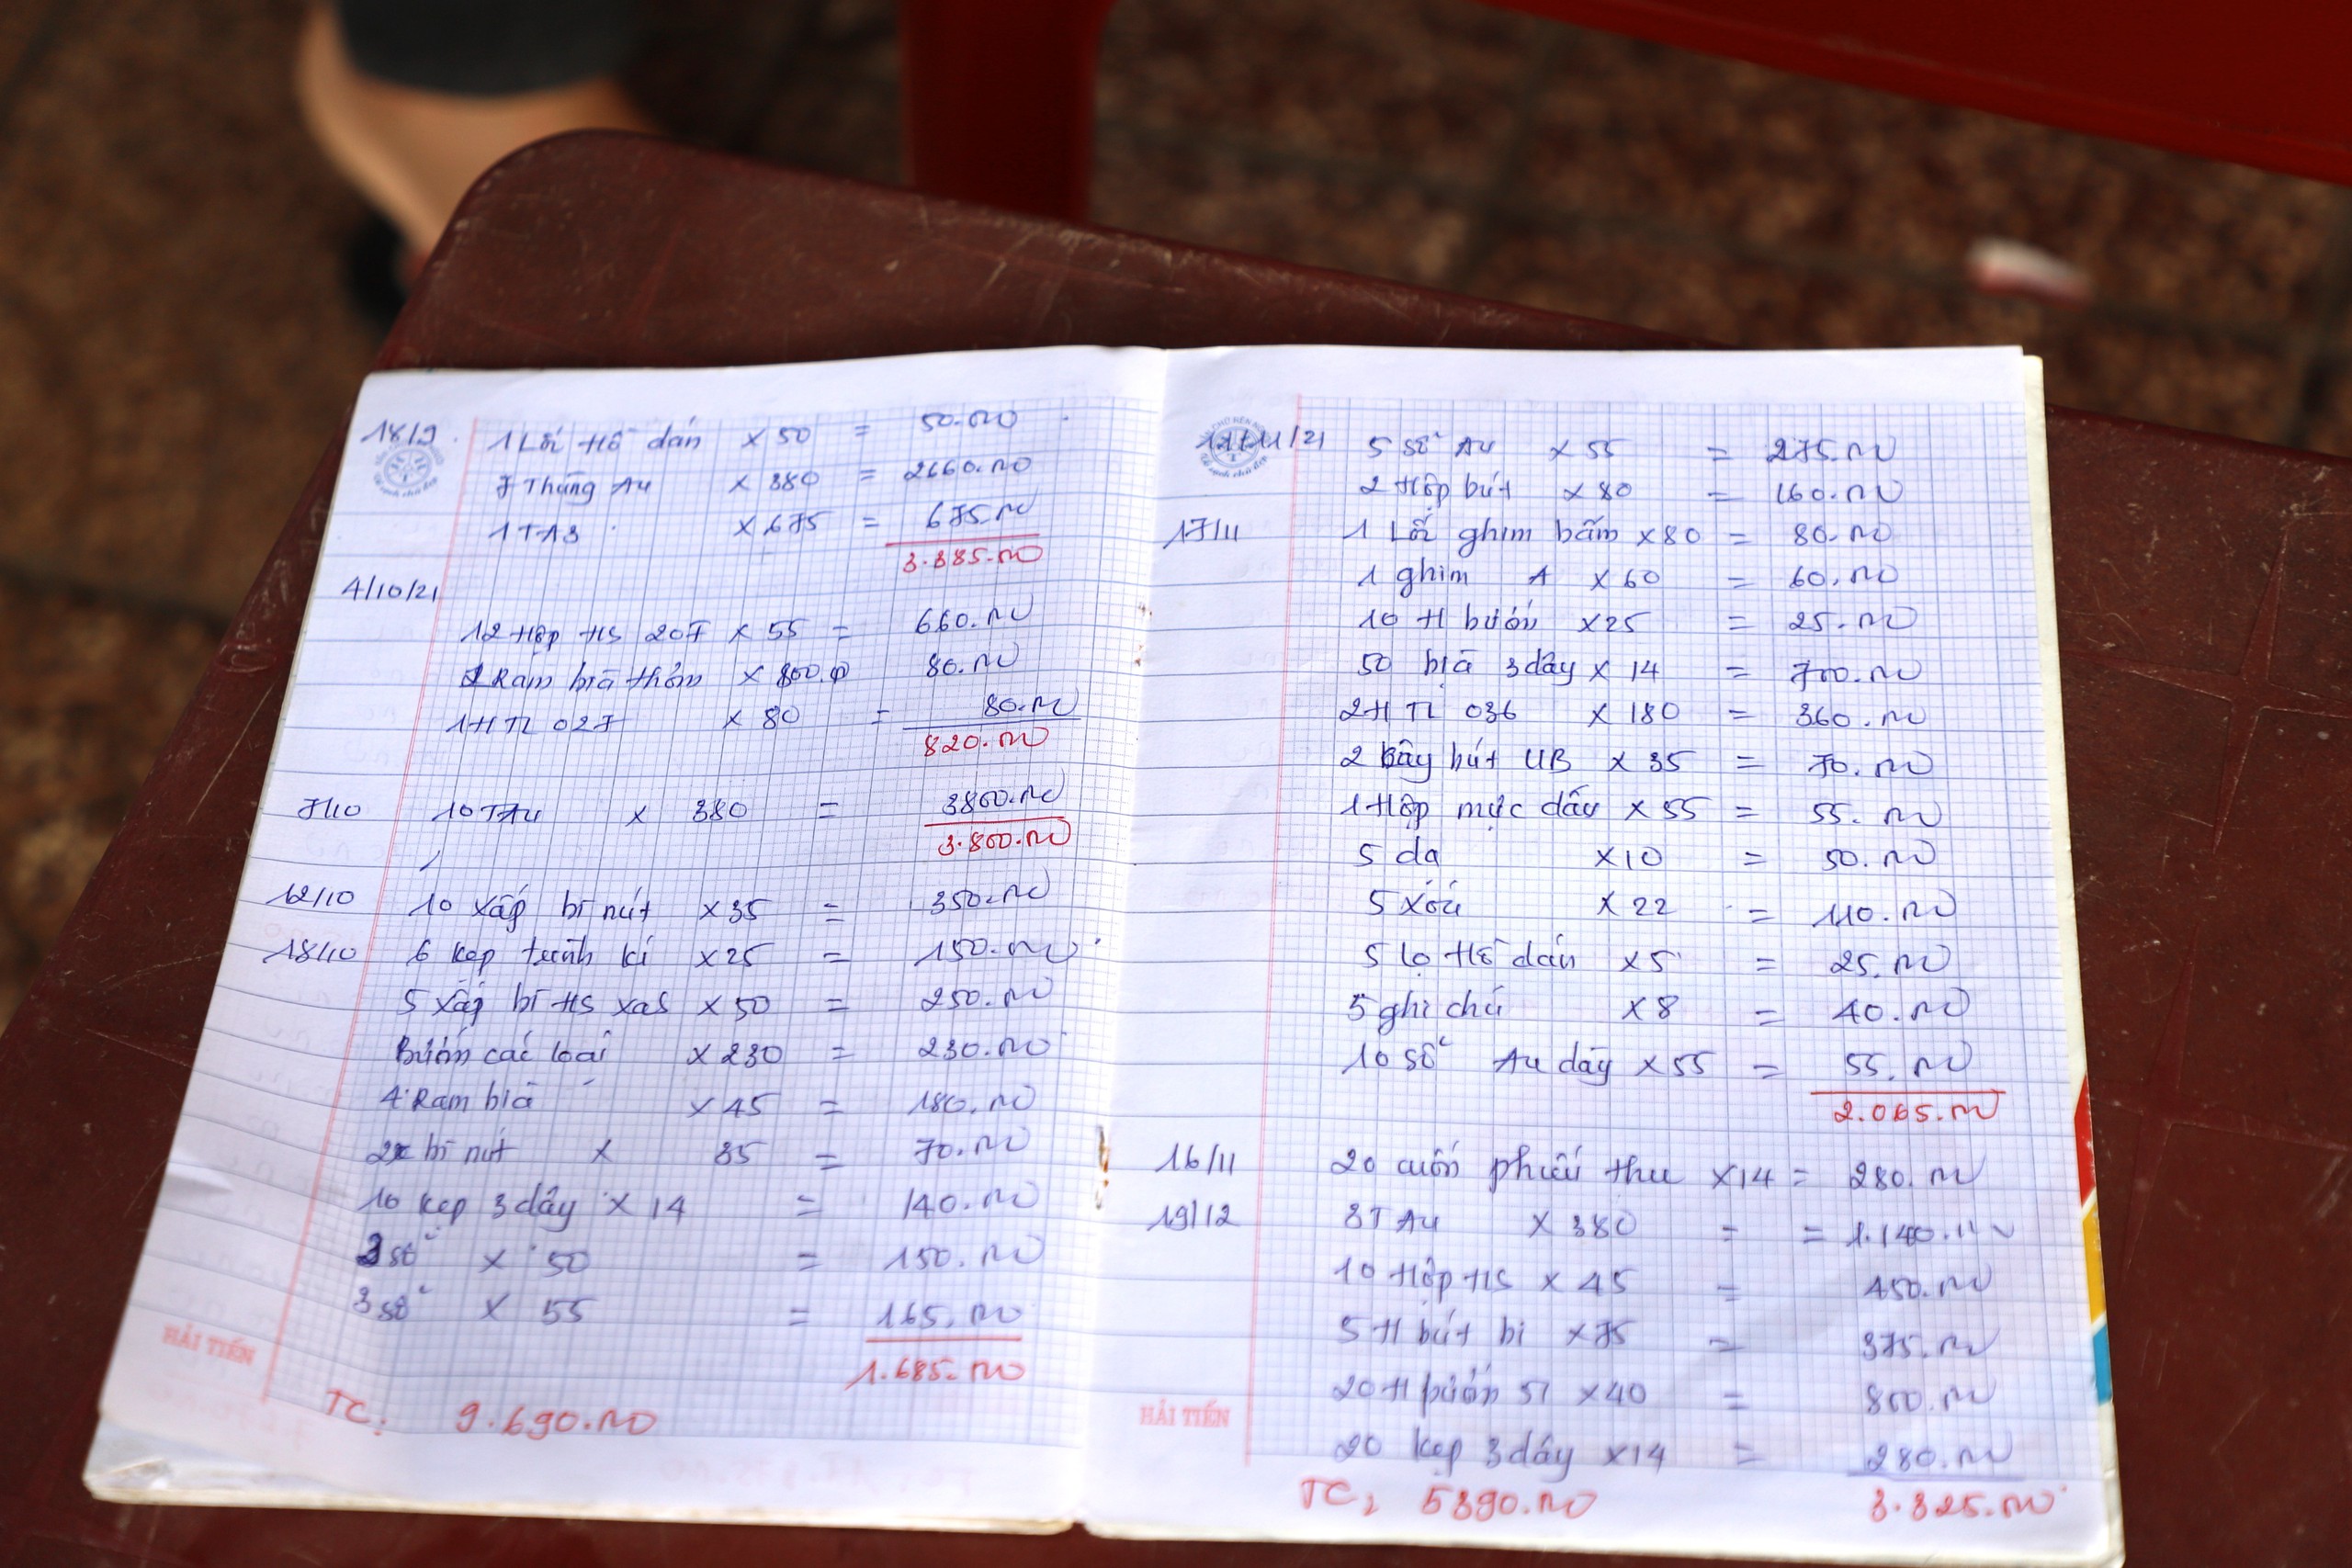 18/9 1 Lốc Hồ dán x 50 = 50.000
7 Thùng A4 x 380 = 2660.000
1 TA3 x 675 = 675.000
3.385.000
4/10/21
12 Hộp HS 207 x 55 = 660.000
1 Ram bìa thơm x 800.0 80.000
1H TL 027 x 80 = 80.000
820.000
7/10 10 TA4 x 380 = 3800.000
3.800.000
12/10 10 xấp bì nút x 35 = 350.000
18/10 6 kẹp trình kí x 25 = 150.000
5 xấp bì HS xas x 50 = 250.000
Bướm các loại x 230 = 230.000
4 Ram bìa x 45 = 180.000
2x bì nút x 35 = 70.000
10 kẹp 3 dây x 14 = 140.000
3 sổ x 50 = 150.000
3 sổ x 55 = 165.000
1.685.000
HẢI TIẾN
TC: 9.690.000
11/11/21 5 sổ A4 x 55 = 275.000
2 Hộp bút x 80 = 160.000
17/11 1 Lốc ghim bấm x 80 = 80.000
1 ghim A x 60 = 60.000
10 H bướm x 25 = 25.000
50 bìa 3 dây x 14 = 700.000
2H TL 036 x 180 = 360.000
2 cây bút UB x 35 = 70.000
1 Hộp mực dấu x 55 = 55.000
5 da x 10 = 50.000
5 xóa x 22 = 110.000
5 lọ Hồ dán x 5 = 25.000
5 ghi chú x 8 = 40.000
10 sổ A4 dày x 55 = 55.000
2.065.000
16/11 20 cuốn phiếu thu x 14 = 280.000
19/12 3T A4 x 380 = = 1.140.000
10 Hộp HS x 45 = 450.000
5 H bút bi x 75 = 375.000
20 H bướm 51 x 40 = 800.000
HẢI TIẾN
20 kẹp 3 dây x 14 = 280.000
TC: 5390.000 3.325.000